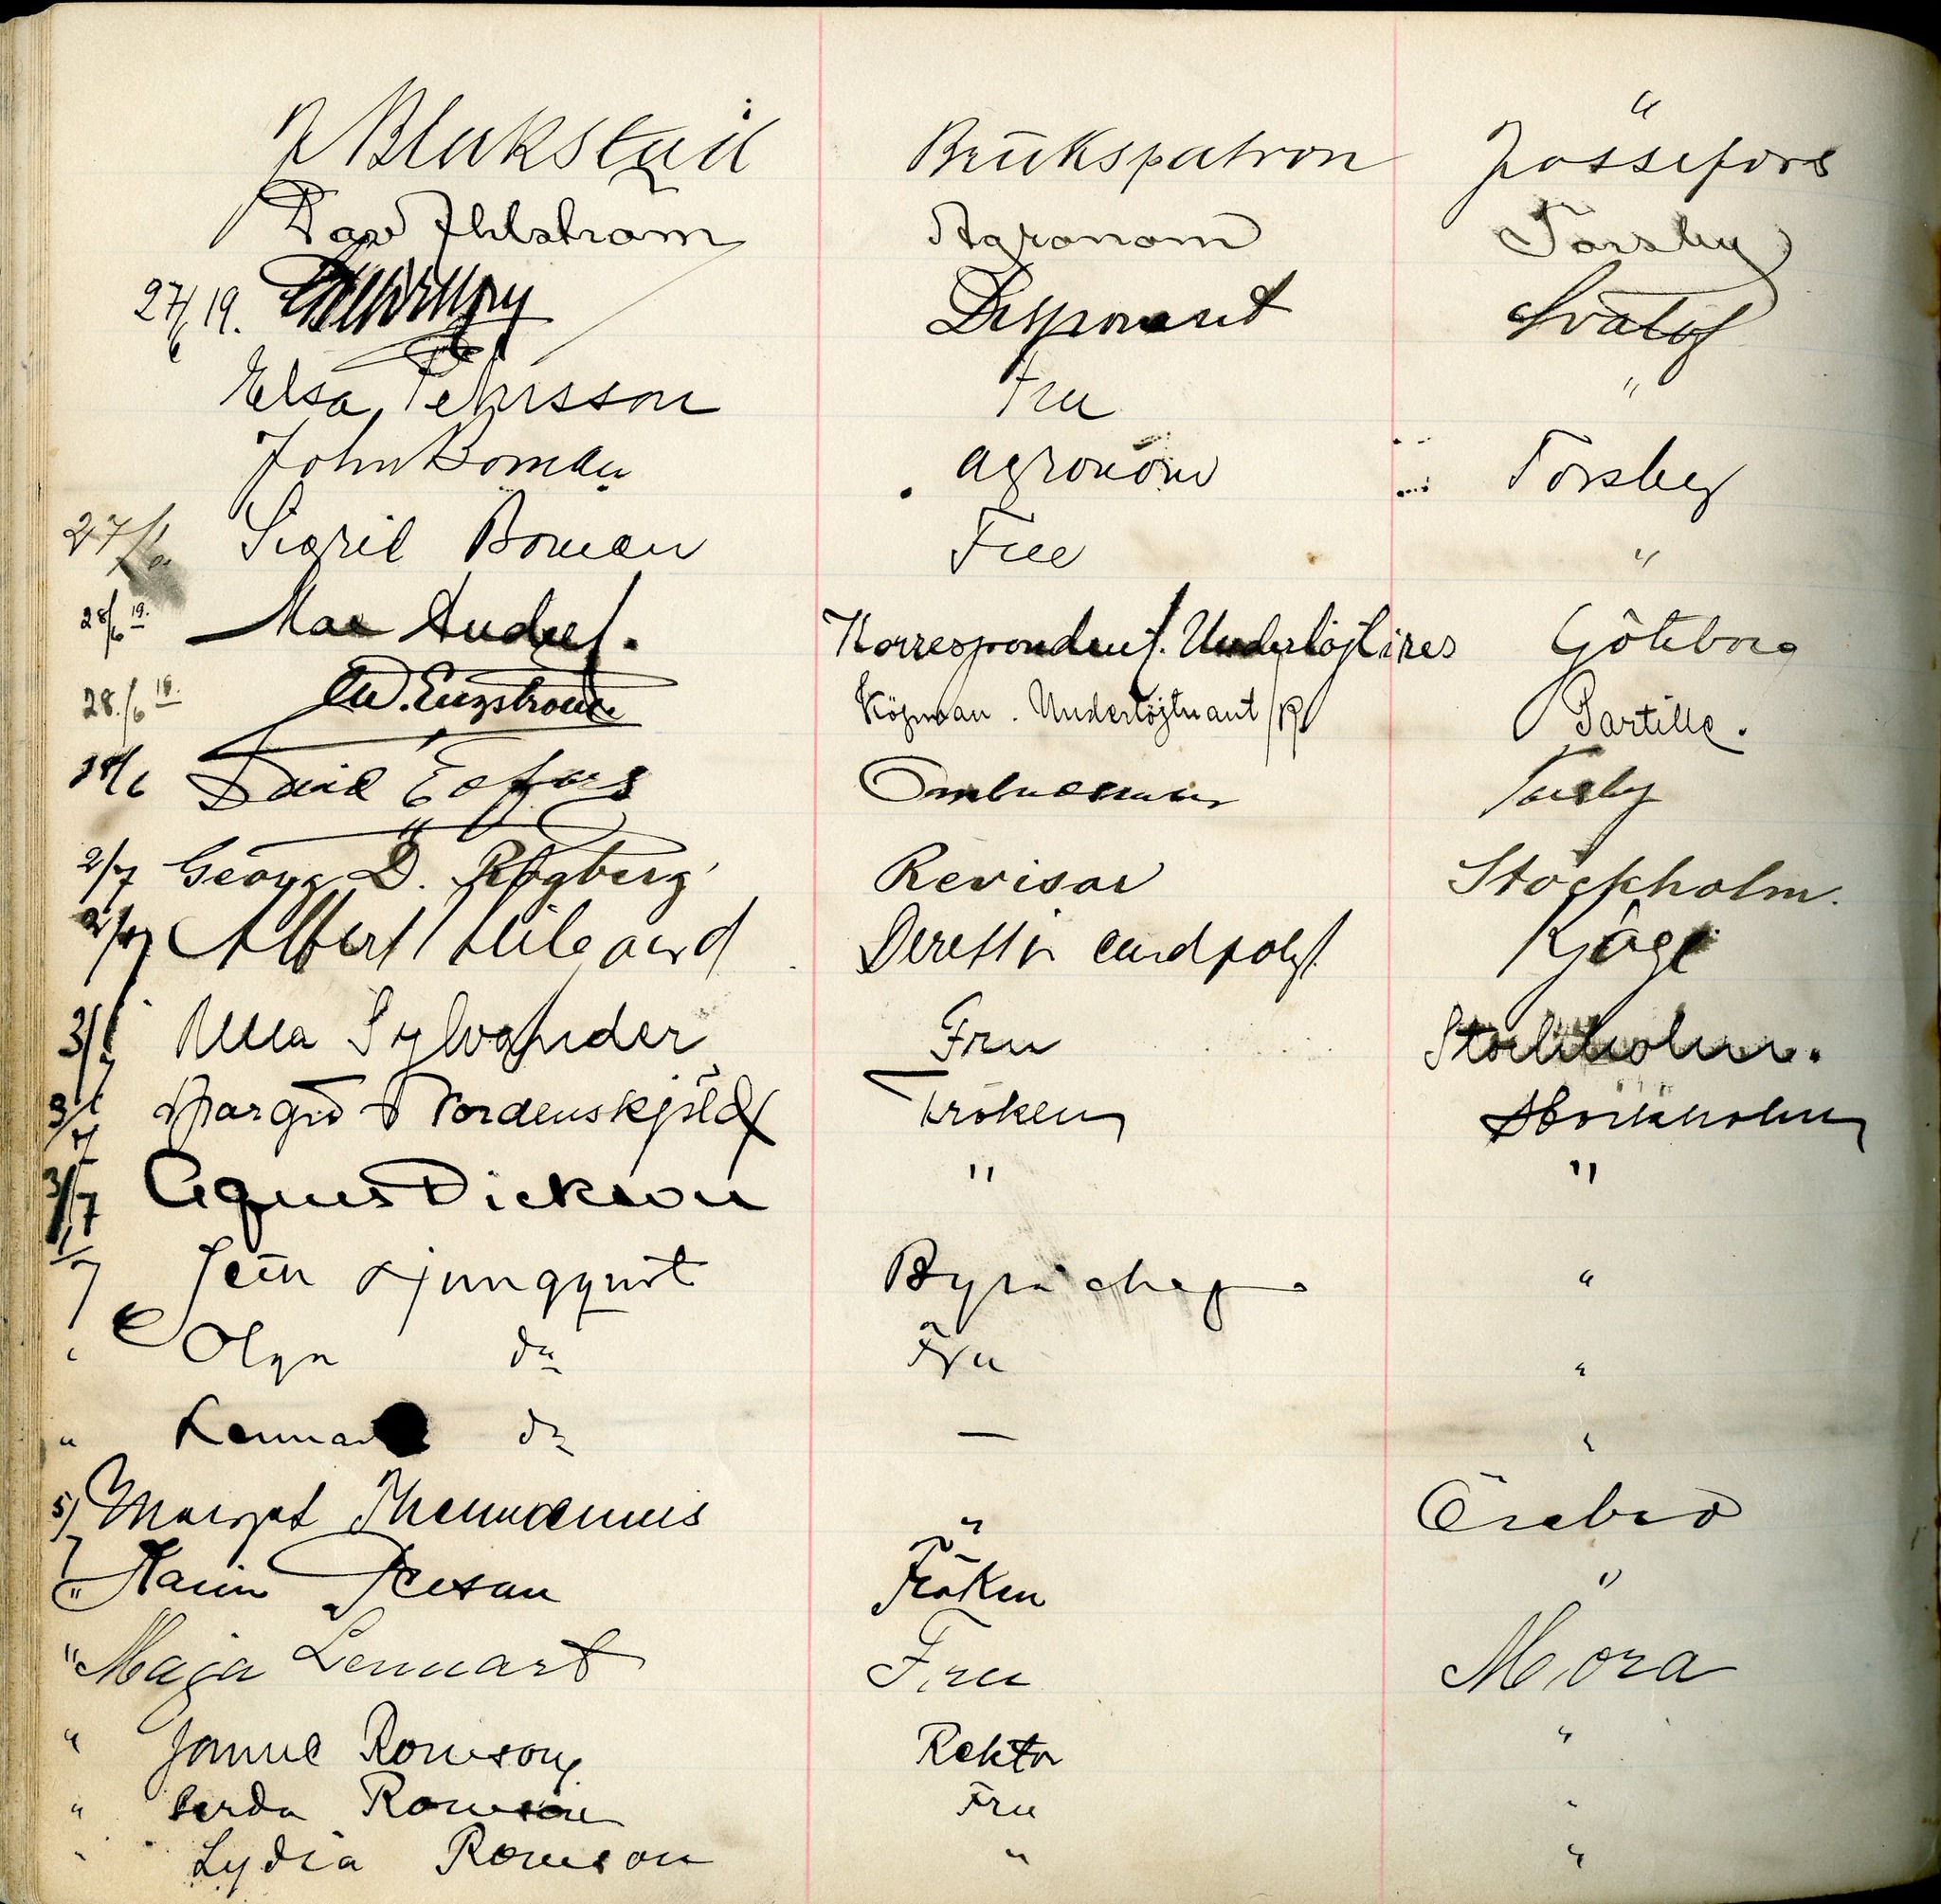 Blakstad Brukspatron Jössefors
Dav Ihlström Agronom Torsby
27/6 19. Disponent Svalöf
Elsa Pehrsson Fru "
John Boman agronom Torsby
27/6 Sigrid Boman Fru "
28/6 19. Max Korrespondent. Underlöjt i res Göteborg
28./6 19. Engström Köpman. Underlöjtnant /R Partille.
28/6 David Ombudsman Torsby
2/7 Georg D. Rogberg Revisor Stockholm.
2/7 Albert cand polyt. Kjöge
3/7 Ulla Sylvander Fru Stockholm.
3/7 Margit Nordenskjöld Fröken Stockholm
3/7 Agnes Dickson " "
/7 Ljungqvist Byråchef "
" Olga do Fru "
" Lennart do — "
5/7 Margot Örebro
" Karin Fröken "
" Maja Lennart Fru Mora
" Janne Romson Rektor "
" Gerda Romson Fru "
" Lydia Romson " "